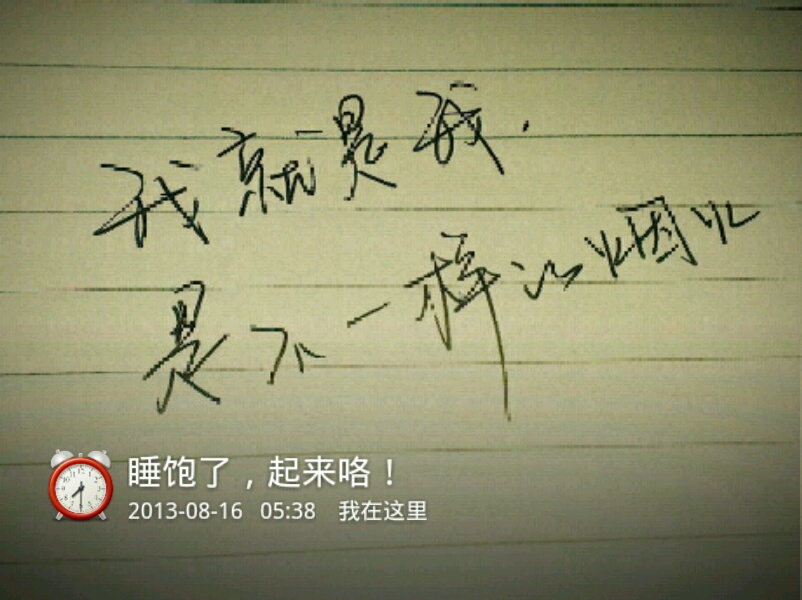 我就是我.
是不一样的烟火
睡饱了，起来咯！
2013-08-16 05:38 我在这里